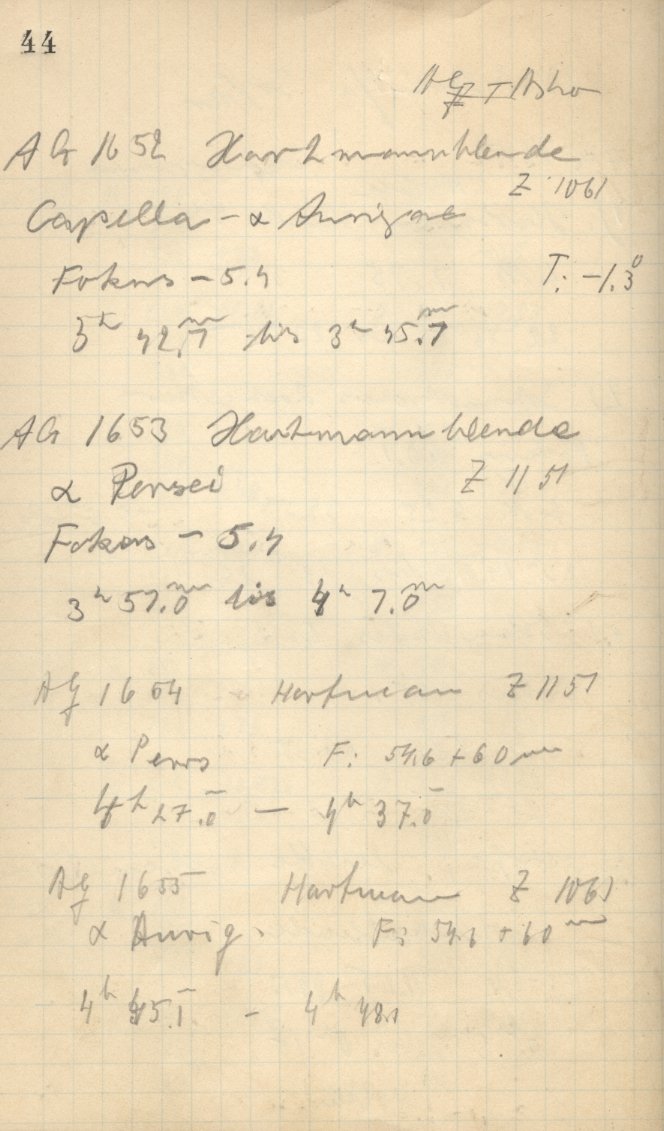 44
AG 1652 Hartmannblende
Z 1061
Capella - α Aurigae
Fokus - 5.4
T: -1.3°
3h 42.7m bis 3h 45.7m
AG 1653 Hartmannblende
α Persei
Z 1151
Fokus - 5.4
3h 57.0m bis 4h 7.0m
AG 1654 Hartman Z 1151
α Pers F: 54.6 + 60 mm
4h 27.0 — 4h 37.0
AG 1655 Hartman Z 1061
α Aurig. F: 54.6 + 60 m
4h 45.1 - 4h 48.1